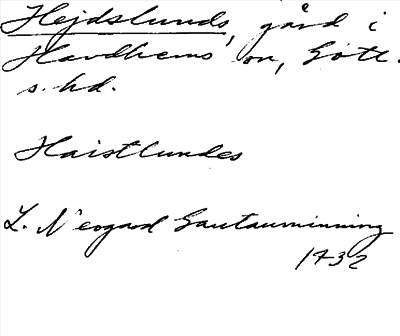 Hejdslunds, gård i
Havdhems sn, Gotl.
s. hd.
Haistlundes
L. Neogard Gautauminning
1732